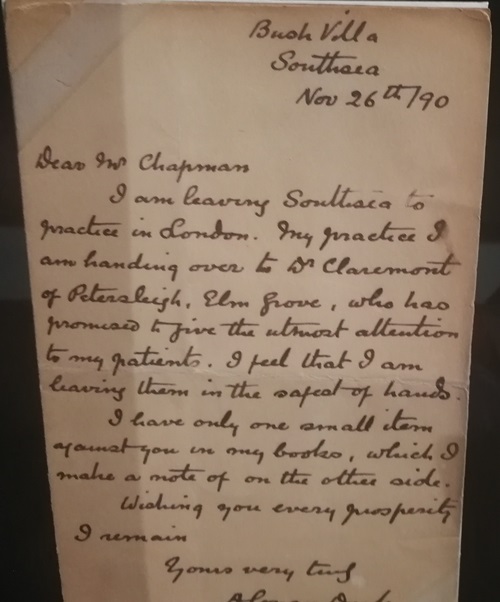 Bush Villa
Southsea
Nov 26th/90
Dear Mr Chapman
I am leaving Southsea to
practice in London. My practice I
am handing over to Dr Claremont
of Petersleigh, Elm Grove, who has
promised to give the utmost attention
to my patients. I feel that I am
leaving them in the safest of hands.
I have only one small item
against you in my books, which I
make a note of on the other side.
Wishing you every prosperity
I remain
Yours very truly